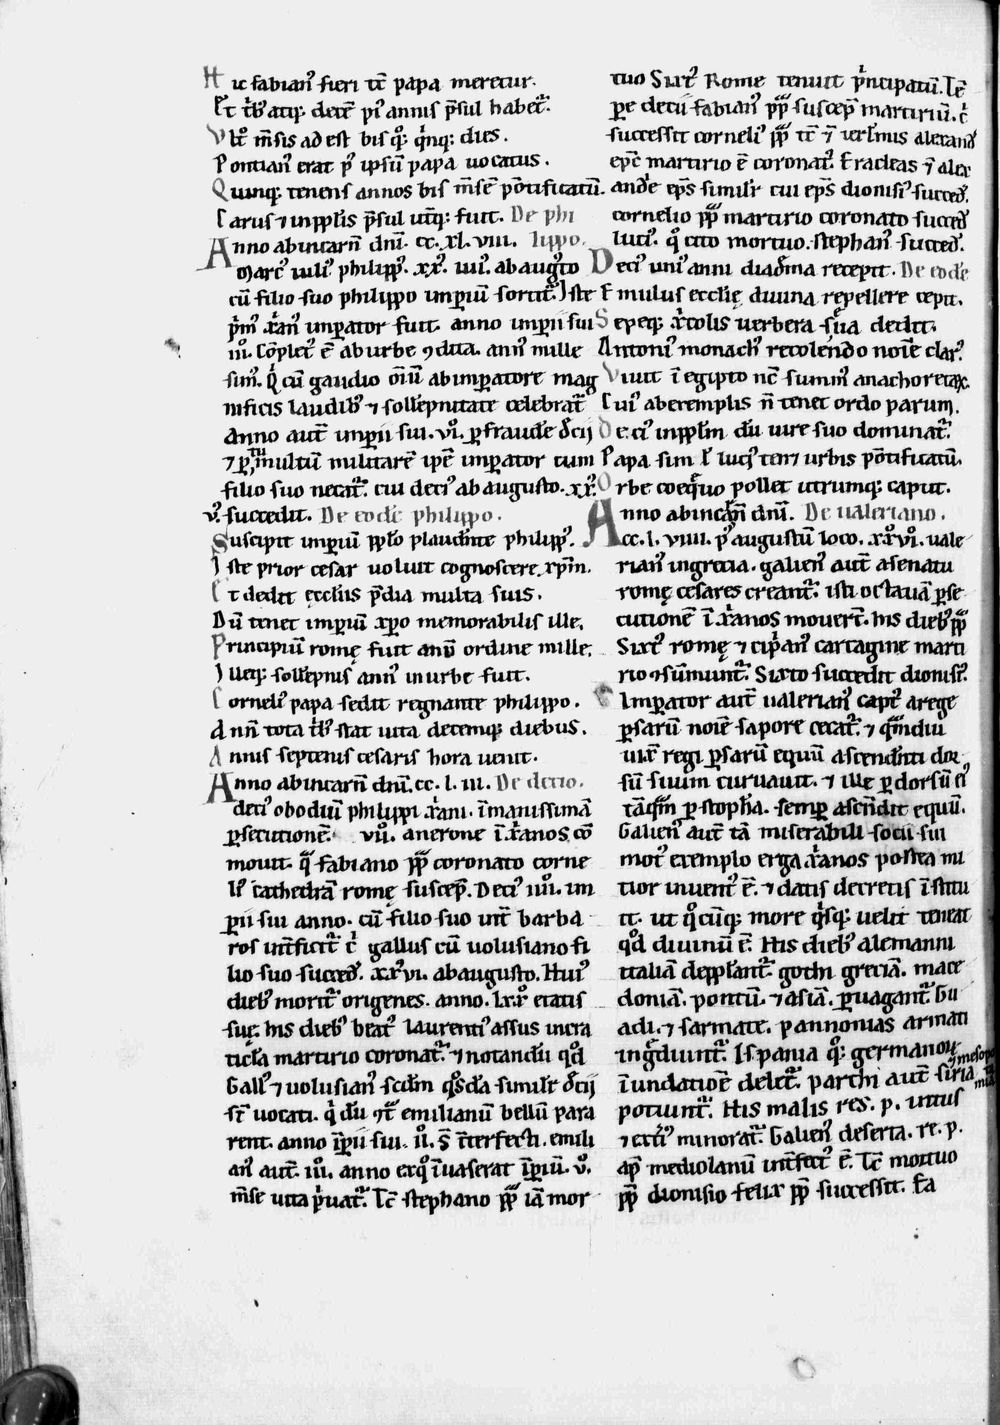 Hic fabian᷒ fieri tc̄ papa meretur.
Et tͥb᷒ atq; decē pi᷒ annis p̄sul habet᷑.
Vlt̄ m̄sis adest bis qͦ; qͥnq; dies.
Pontian᷒ erat pͥ ipsiū papa uocatus.
Quinq; tenens annos bis m̄se pōtificatū.
Carus ⁊ inpp̄lis p̄sul utq; fuit. De phi
Anno abincarn̄ dnī. cc. xl. viii. lippo.
Marc᷒ iuli᷒ philipp᷒. xxͦ. iiii᷒. ab aug᷒to
cū filio suo philippo imperiū sortit᷑. Iste
pͥm᷒ xͥan᷒ imperator fuit. anno imperii sui
iii᷒. cōplet᷒ ē ab urbe ꝯdita. ann᷒ mille
sim᷒. Qͥ cū gaudio oīū ab imperatore mag
nificis laudib᷒ ⁊ sollēpnitate celebrat᷑
Anno aut̄ imperii sui. vi᷒. ꝑ fraudē decii
⁊ ꝑ tumultū militarē ipē imperator cum
filio suo necat᷑. cui deci᷒ ab augusto. xxͦ.
vͦ. succedit. De eodē philippo.
Suscipit imperiū pp̄lo plaudente philipp᷒.
Iste prior cesar uoluit cognoscere xp̄m.
Et dedit ecclīis p̄dia multa suis.
Dū tenet imperiū xp̄o memorabilis ille.
Principiū romę fuit anū ordine mille.
Illeq; sollēpnis ann᷒ in urbe fuit.
Corneli᷒ papa sedit regnante philippo.
Ann̄ tota tͥb᷒ stat uita decemq; diebus.
Annis septenis cesaris hora uenit.
Anno abincarn̄ dnī. cc. l. iii. De decio.
deci᷒ ob odiū philippi xͥani. īmanissimā
ꝑsecutionē. viiͦ. a nerone ī xͥanos cō
mouit. qͣ fabiano pp̄ coronato corne
li᷒ cathedrā romę suscep̄. Deci᷒ iiiͦ. im
perii sui anno. cū filio suo int̄ barba
ros int̄ficit᷑ cͥ gallus cū uolusiano fi
lio suo succed̄. xxͦvi. ab augusto. Hui᷒
dieb᷒ morit᷑ origenes. anno. lxxͦ etatis
suę. his dieb᷒ beat᷒ laurenti᷒ assus in cra
ticla martirio coronat᷑. ⁊ notandū qd̄
Gall᷒ ⁊ uolusian᷒ scdm̄ qͦsdā similiт̄ decii
st̄ uocati. qͥ dū ꝯtͣ emilianū bellū para
rent. anno īperii sui. iiͦ. s̄ īterfecti. emili
an᷒ aut̄. iiiͦ. anno ex qͦ īuaserat īperiū. vͦ.
m̄se uita pͥuat᷑. Tc̄ stephano pp̄ iā mor
tuo Sixt᷒ Rome tenuit pͥncipatū. Tē
pe decii fabian᷒ pp̄ suscep̄ martiriū. cͥ
successit corneli᷒ pp̄ tc̄ ⁊ ierl̄mus alexand̄
epc̄ martirio ē coronat᷒. Eracleas ⁊ alex
andͥe ep̄s similiт̄ cui ep̄s dionisi᷒ succed̄.
cornelio pp̄ martirio coronato succed̄
luci᷒. qͦ cito mortuo. stephan᷒ succed̄.
Deci᷒ uni᷒ anni diadēma recepit. De eodē
Emulus ecclīę diuina repellere cepit.
Sepeq; xͥcolis uerbera sęua dedit.
Antoni᷒ monach᷒ recolendo noīe clar᷒.
Viuit ī egipto nc̄ summ᷒ anachoretaꝝ.
Cui᷒ ab exemplis n̄ tenet ordo parum.
Deci᷒ inpp̄lm dū iure suo dominat᷑.
Papa sim᷒l luci᷒ tenet urbis pōtificatū.
Orbe coequͦo pollet utrumq; caput.
Anno abincarn̄ dnī. De ualeriano.
cc. l. viiii. pͥ augustū loco. xxͦviͦ. uale
rian᷒ in grecia. galien᷒ aut̄ a senatu
romę cesares creant᷑. isti octauā ꝑse
cutionē ī xͥanos mouert̄. his dieb᷒ pp̄
Sixt᷒ romę ⁊ cipͥan᷒ cartagine marti
rio ꝯsūmunt᷑. Sixto succedit dionisi᷒.
Imperator aut̄ ualerian᷒ capt᷒ a rege
ꝑsarū noīe sapore cecat᷑. ⁊ qͣmdiu
uixit regi ꝑsarū equū ascendenti dor
sū suum curuauit. ⁊ ille ꝑ dorsū ei᷒
tāqͣm ꝑ stopha. semꝑ ascendit equū.
Galien᷒ aut̄ tā miserabili socii sui
mot᷒ exemplo erga xͥanos postea mi
tior inuent᷒ ē. ⁊ datis decretis īstitu
it. ut qͦcūq; more qͥsq; uelit teneat
qd̄ diuinū ē. His dieb᷒ alemanni
italiā depp̄lant᷑. gothi greciā. mace
doniā. pontū. ⁊ asiā. ꝑuagant᷑. Gu
adi. ⁊ sarmate. pannonias armati
ingͣdiunt᷑. Ispania qͦ; germanoꝝ
īundatiōe delet᷑. parthi aut̄ siria ⁊ mesopo
potiunt᷑. His malis res. p. intus tamia
⁊ ext̄ minorat᷑. Galien᷒ deserta. re. p.
ap̄ mediolanū int̄fect᷒ ē. Tc̄ mortuo
pp̄ dionisio felix pp̄ successit. Ea